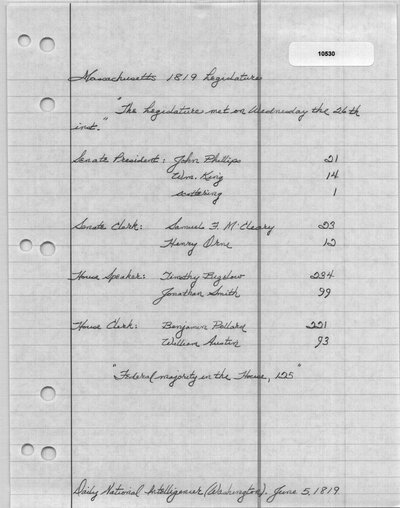 10530
Massachusetts 1819 Legislature
"The Legislature met on Wednesday the 26th
inst."
Senate President: John Phillips 21
Wm. King 14
scattering 1
Senate Clerk: Samuel F. McCleary 23
Henry Orne 12
House Speaker: Timothy Bigelow 234
Jonathan Smith 99
House Clerk: Benjamin Pollard 221
William Austin 93
"Federal majority in the House, 125"
Daily National Intelligencer (Washington). June 5, 1819.